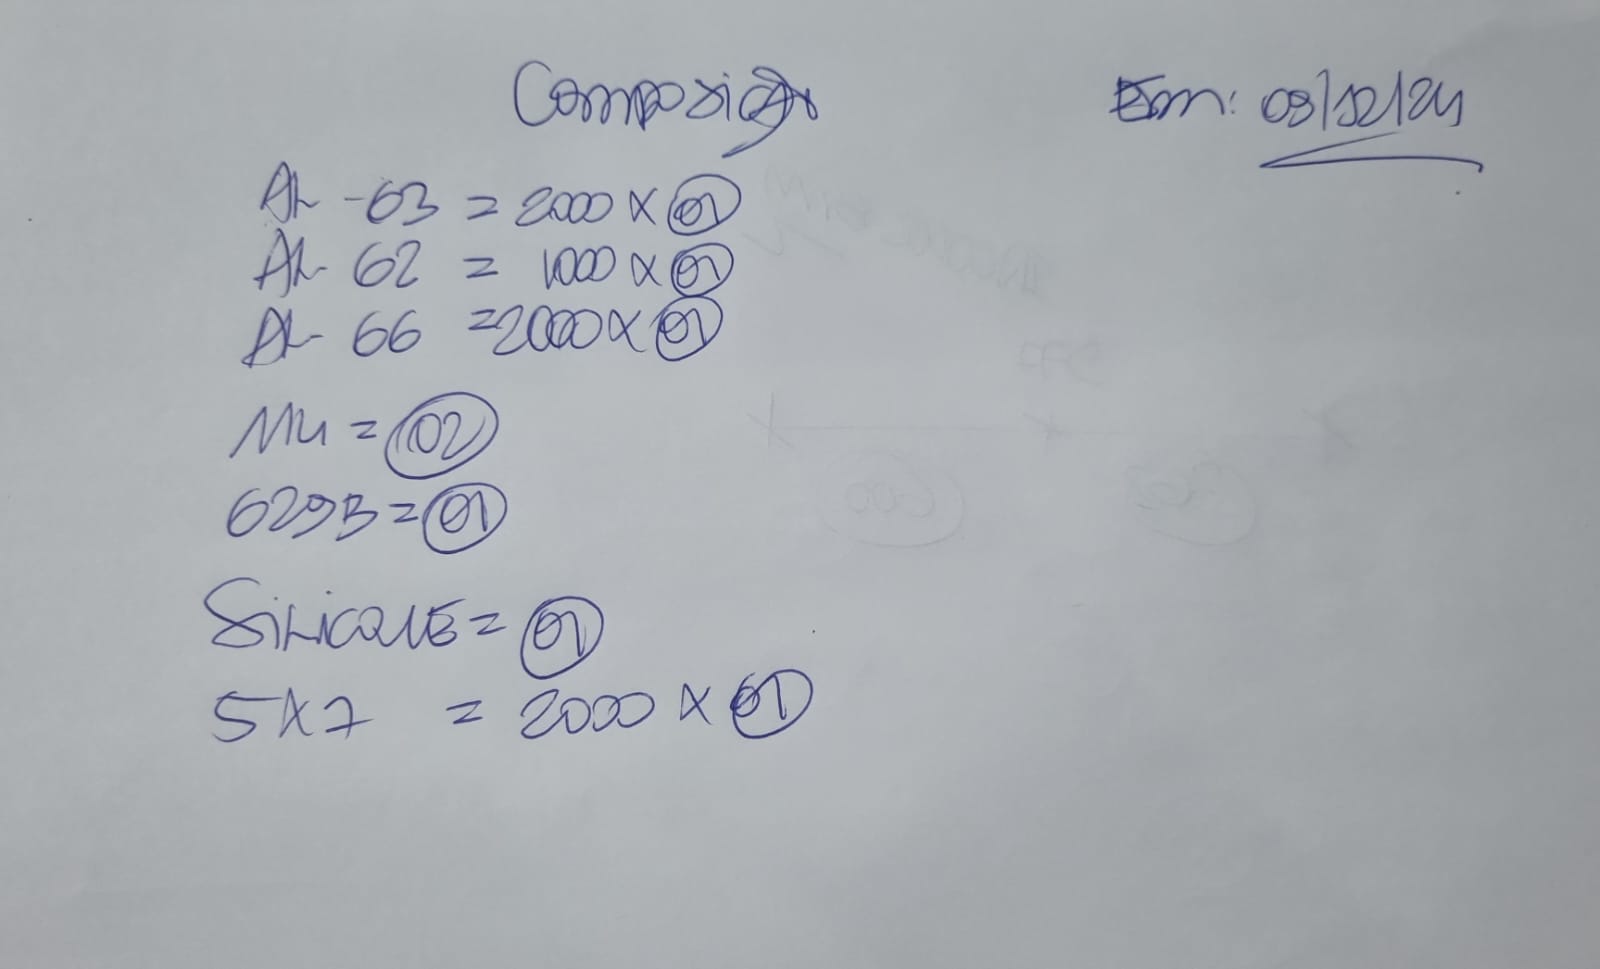 Composição
Em: 09/12/24
AL-63 = 2000 x 01
AL-62 = 1000 x 01
AL-66 = 2000 x 01
M4 = 02
629B = 01
SiLiCONE = 01
5x7 = 2000 x 01